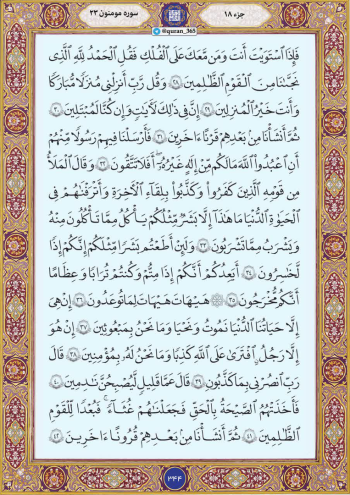 جزء ۱۸
@quran_365
سوره مومنون ۲۳
فَإِذَا ٱسْتَوَيْتَ أَنتَ وَمَن مَّعَكَ عَلَى ٱلْفُلْكِ فَقُلِ ٱلْحَمْدُ لِلَّهِ ٱلَّذِى
نَجَّىٰنَا مِنَ ٱلْقَوْمِ ٱلظَّـٰلِمِينَ ﴿٢٨﴾ وَقُل رَّبِّ أَنزِلْنِى مُنزَلًا مُّبَارَكًا
وَأَنتَ خَيْرُ ٱلْمُنزِلِينَ ﴿٢٩﴾ إِنَّ فِى ذَٰلِكَ لَـَٔايَـٰتٍ وَإِن كُنَّا لَمُبْتَلِينَ ﴿٣٠﴾
ثُمَّ أَنشَأْنَا مِنۢ بَعْدِهِمْ قَرْنًا ءَاخَرِينَ ﴿٣١﴾ فَأَرْسَلْنَا فِيهِمْ رَسُولًا مِّنْهُمْ
أَنِ ٱعْبُدُوا۟ ٱللَّهَ مَا لَكُم مِّنْ إِلَـٰهٍ غَيْرُهُۥٓ أَفَلَا تَتَّقُونَ ﴿٣٢﴾ وَقَالَ ٱلْمَلَأُ
مِن قَوْمِهِ ٱلَّذِينَ كَفَرُوا۟ وَكَذَّبُوا۟ بِلِقَآءِ ٱلْـَٔاخِرَةِ وَأَتْرَفْنَـٰهُمْ فِى
ٱلْحَيَوٰةِ ٱلدُّنْيَا مَا هَـٰذَآ إِلَّا بَشَرٌ مِّثْلُكُمْ يَأْكُلُ مِمَّا تَأْكُلُونَ مِنْهُ
وَيَشْرَبُ مِمَّا تَشْرَبُونَ ﴿٣٣﴾ وَلَئِنْ أَطَعْتُم بَشَرًا مِّثْلَكُمْ إِنَّكُمْ إِذًا
لَّخَـٰسِرُونَ ﴿٣٤﴾ أَيَعِدُكُمْ أَنَّكُمْ إِذَا مِتُّمْ وَكُنتُمْ تُرَابًا وَعِظَـٰمًا
أَنَّكُم مُّخْرَجُونَ ﴿٣٥﴾ ۞ هَيْهَاتَ هَيْهَاتَ لِمَا تُوعَدُونَ ﴿٣٦﴾ إِنْ هِىَ
إِلَّا حَيَاتُنَا ٱلدُّنْيَا نَمُوتُ وَنَحْيَا وَمَا نَحْنُ بِمَبْعُوثِينَ ﴿٣٧﴾ إِنْ هُوَ
إِلَّا رَجُلٌ ٱفْتَرَىٰ عَلَى ٱللَّهِ كَذِبًا وَمَا نَحْنُ لَهُۥ بِمُؤْمِنِينَ ﴿٣٨﴾ قَالَ
رَبِّ ٱنصُرْنِى بِمَا كَذَّبُونِ ﴿٣٩﴾ قَالَ عَمَّا قَلِيلٍ لَّيُصْبِحُنَّ نَـٰدِمِينَ ﴿٤٠﴾
فَأَخَذَتْهُمُ ٱلصَّيْحَةُ بِٱلْحَقِّ فَجَعَلْنَـٰهُمْ غُثَآءً ۚ فَبُعْدًا لِّلْقَوْمِ
ٱلظَّـٰلِمِينَ ﴿٤١﴾ ثُمَّ أَنشَأْنَا مِنۢ بَعْدِهِمْ قُرُونًا ءَاخَرِينَ ﴿٤٢﴾
۳۴۴